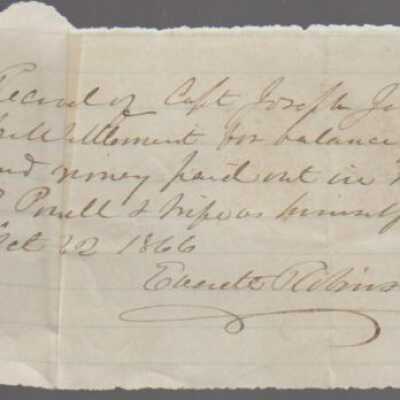 Recievd of Capt Joseph Jo
full settlement for balance
and money paid out in
Powell & wife as himself
Oct 22 1866
Everett Robins